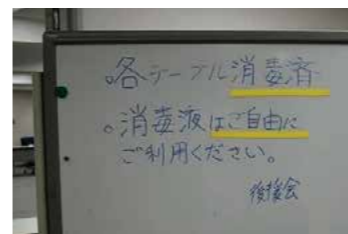 。各テーブル消毒済
。消毒液はご自由に
ご利用ください。
後援会